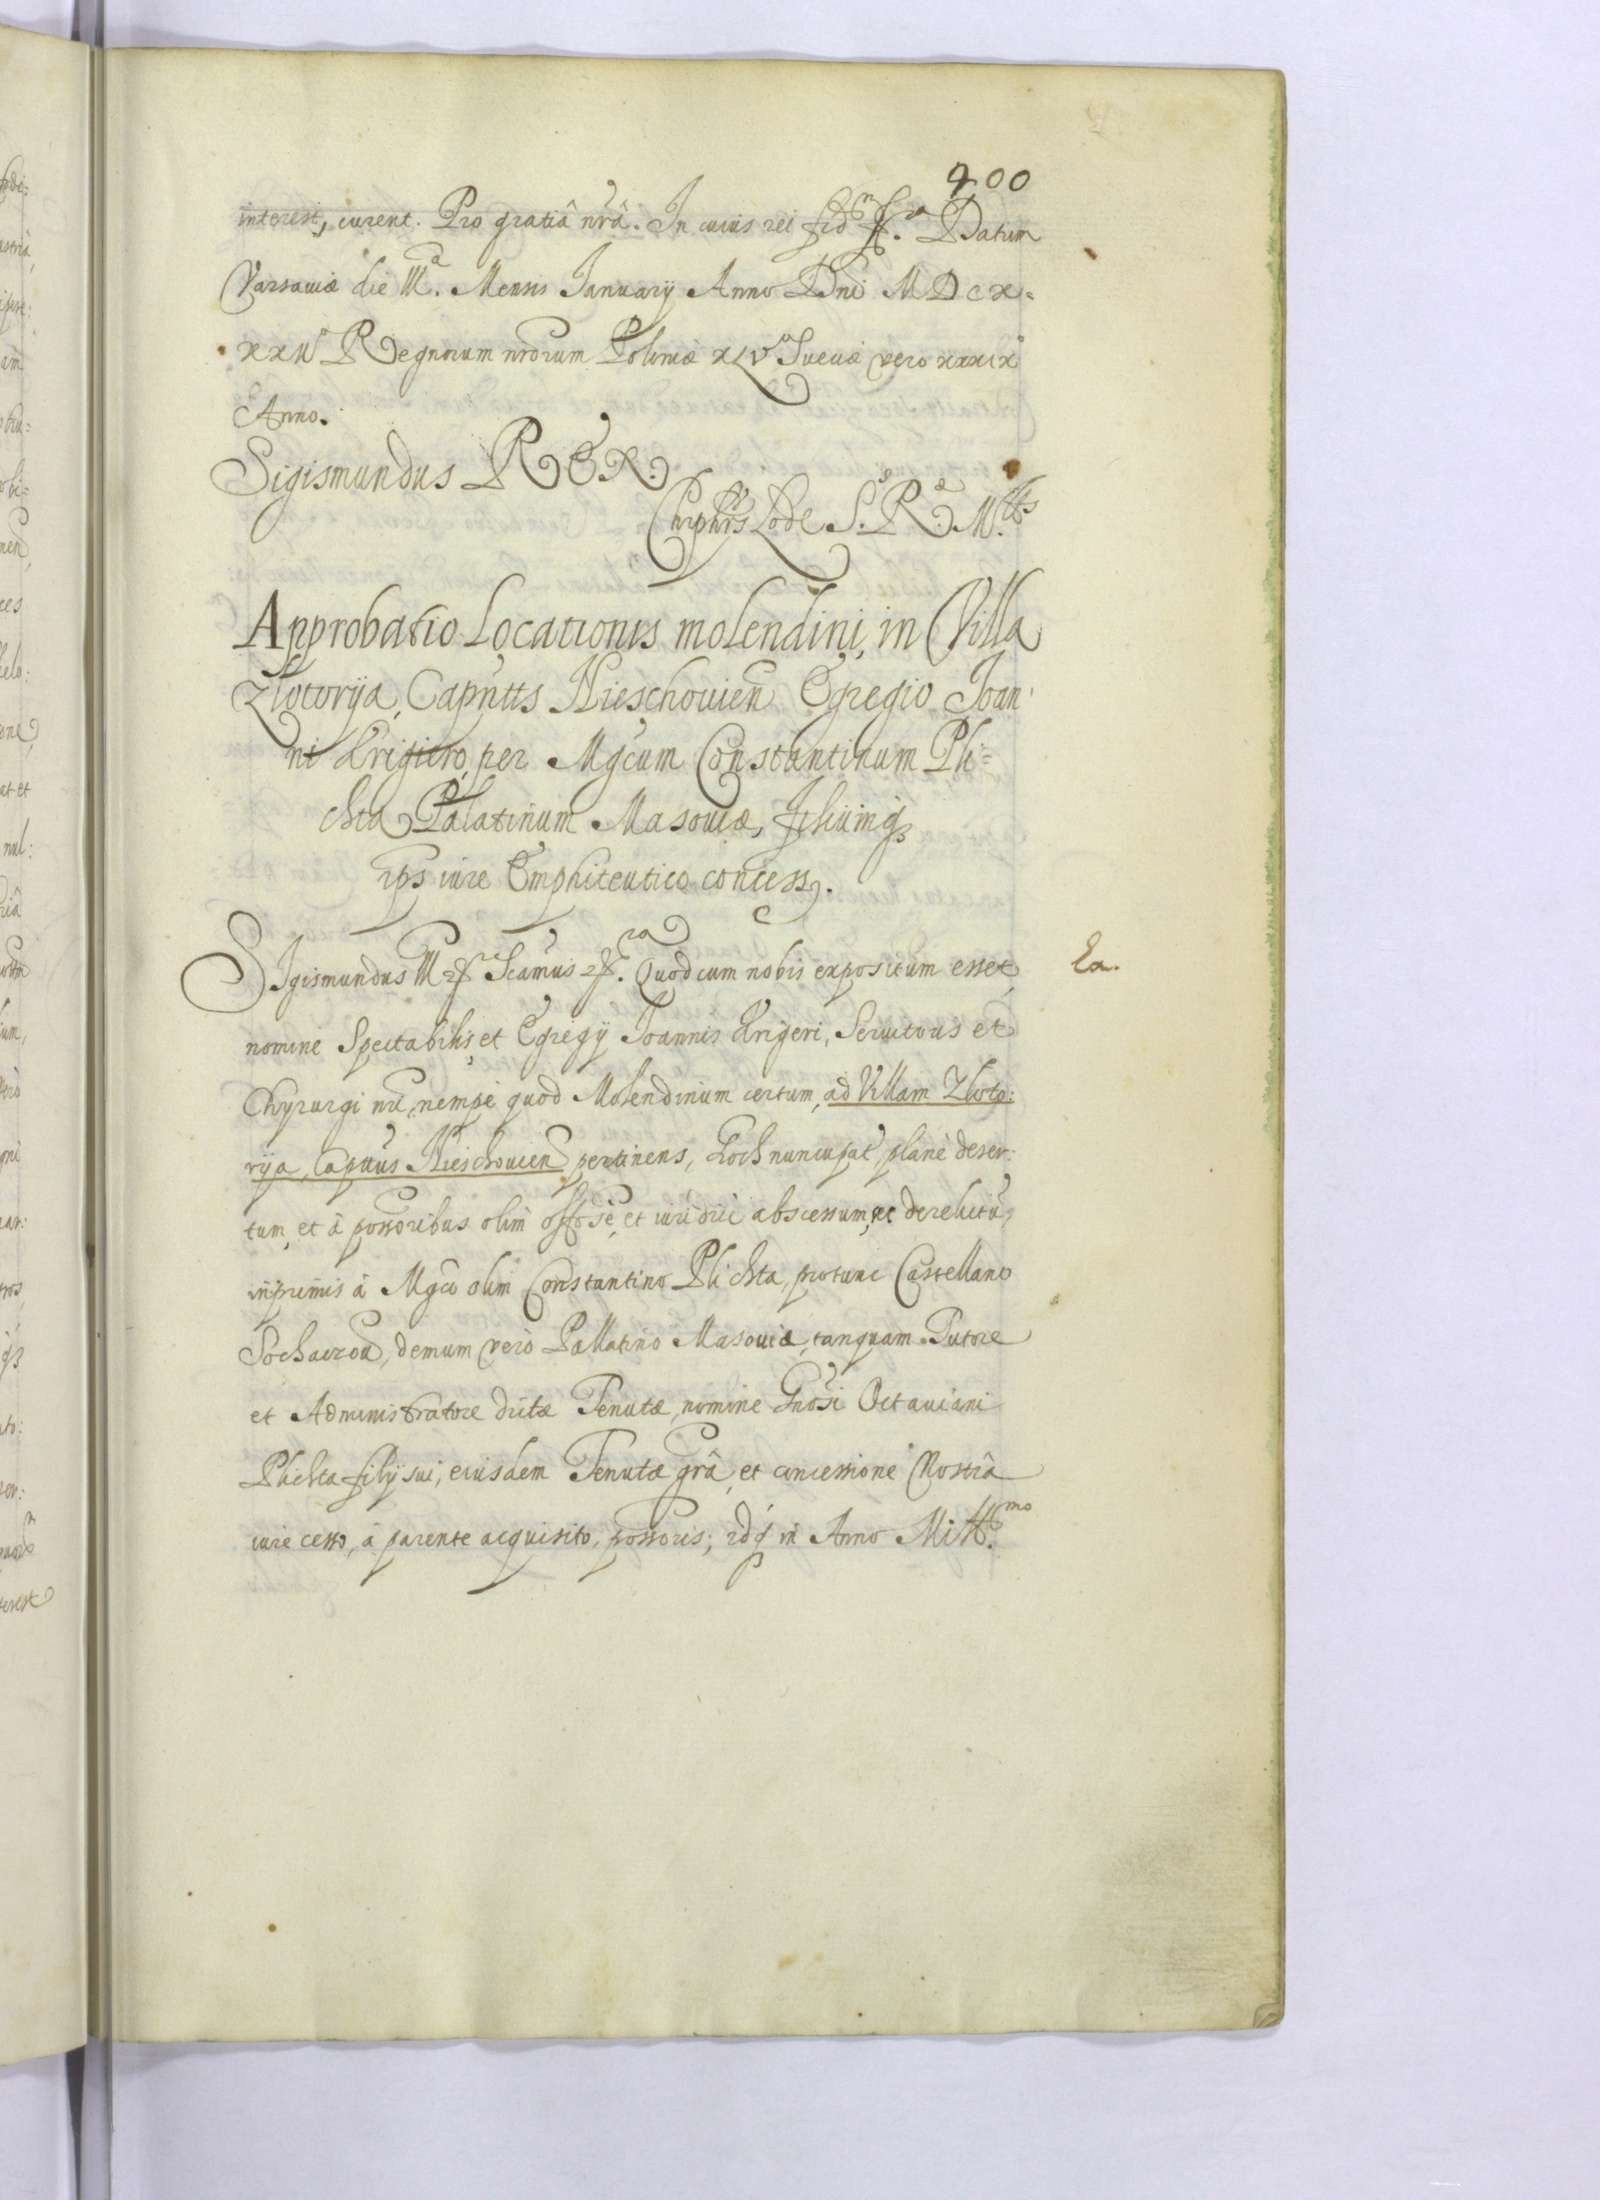 400
interest, curent. Pro gratiâ nrâ. In cuius rei fid Datum
Varsaviæ die Mensis Ianuarij Anno Dni MDCX=
XXII Regnorum nrorum Poloniæ XLV Sueciæ vero XXXIX
Anno.
Sigismundus REX.
S. R. M.
Approbatio Locationis molendini, in Villa
Zlotoryia, Capntts Nieschouien Egregio Joan
ni Krigiero, per Mgcum Constantinum Pli=
chta Palatinum Masouiæ, filiumq
ips iure Emphiteutico concess.
SIgismundus Quod cum nobis expositum esset,
Ea.
nomine Spectabilis, et Egregij Joannis Krigeri, Seruitoris et
Chyrurgi nri, nempe quod Molendinum certum, ad Villam Zloto:
ryia, Capttus Nieschouien pertinens, Loch nuncupat, plane deser:
tum, et à possoribus olim et abscessum, ac derelictũ,
inprimis à Mgco olim Constantino Plichta, protunc Castellano
Sochaczou, demum vero Pallatino Masouiæ, tanquam Tutore
et Administratore dictæ Tenutæ, nomine Gnosi Octauiani
Plichta filij sui, eiusdem Tenutæ grâ, et concessione Nostrâ
iure cesso, à parente acquisito, possoris; idq in Anno Mill.mo